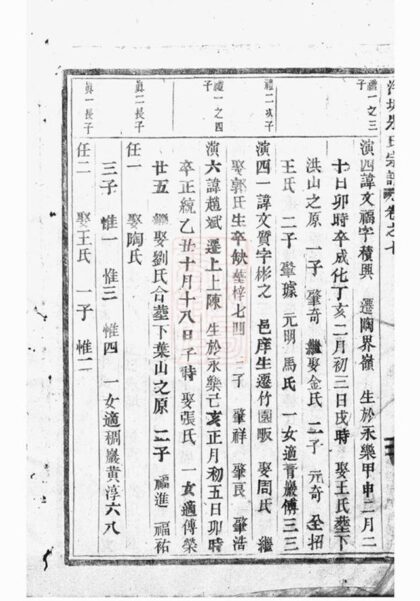 宗譜 卷之七
禮一之三子
演四諱文福字積興 遷陶界嶺 生於永樂甲申二月二
十日卯時卒成化丁亥二月初三日戌時 娶王氏葬下
洪山之原 一子 肇奇 繼娶金氏 二子 元奇 全招
禮二次子
演四一諱文質字彬之 邑庠生遷竹園畈 娶周氏 繼
娶郭氏生卒缺葬梓七門 二子 肇祥 肇良 肇浩
王氏 二子 肇璩 元明 馬氏 一女適青巖傅三三
禮一之四子
演六諱趙斌 遷上上陳 生於永樂己亥正月初五日卯時
卒正統乙丑十月十八日子時 娶張氏 一女適傅榮
廿五 繼娶劉氏合葬下葉山之原 二子 福進 福祐
眞二長子
任一 娶陶氏
三子 惟一 惟三 惟四 一女適稠巖黃淳六八
眞一長子
任二 娶王氏 一子 惟二